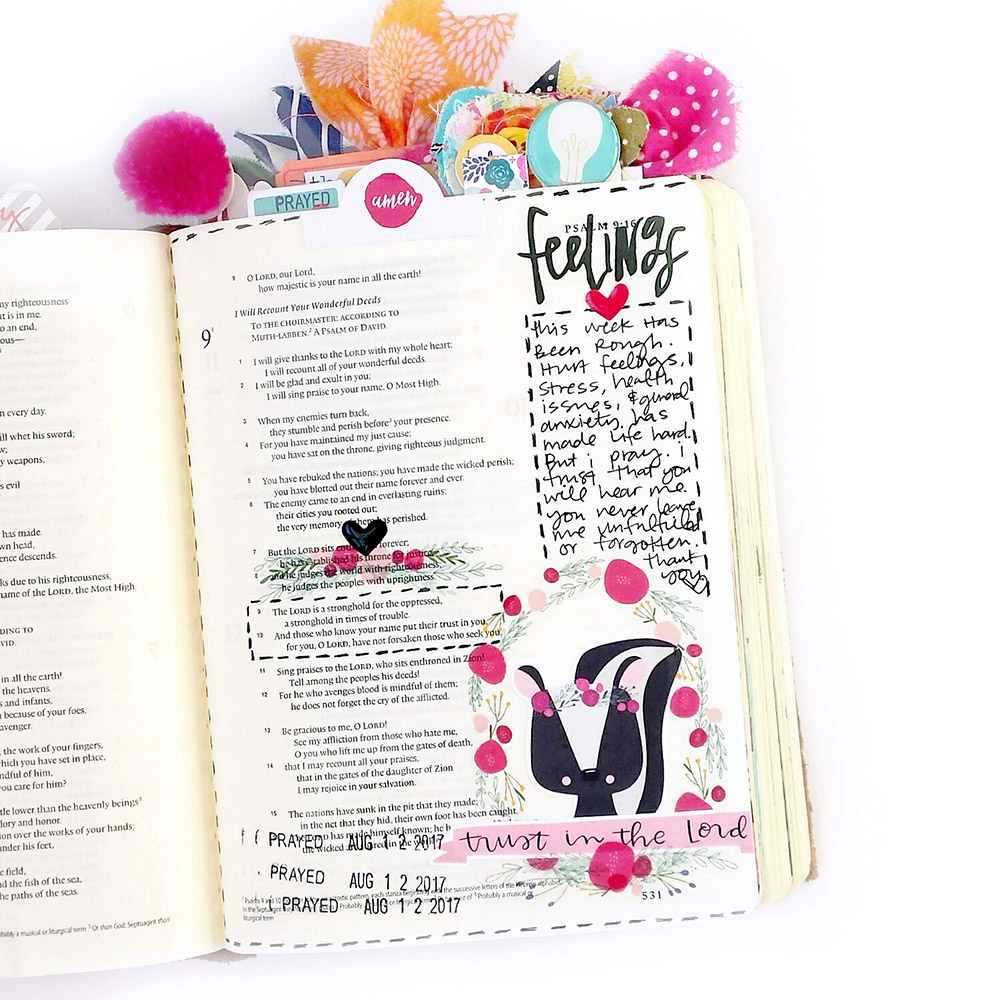 my righteousness
at is in me.
o an end,
ous—
n every day.
ill whet his sword;
w;
y weapons,
s evil
has made.
wn head,
ence descends.
ks due to his righteousness,
name of the LORD, the Most High.
DING TO
VID.
in all the earth!
the heavens.
s and infants,
because of your foes,
avenger.
, the work of your fingers,
which you have set in place,
ndful of him,
you care for him?
tle lower than the heavenly beings⁵
lory and honor.
ion over the works of your hands;
under his feet,
e field,
d the fish of the sea,
he paths of the seas.
bably a musical or liturgical term. ³ Or than God; Septuagint than
PRAYED
amen
PSALM 9:16
9 O LORD, our Lord,
how majestic is your name in all the earth!
I Will Recount Your Wonderful Deeds
9 TO THE CHOIRMASTER: ACCORDING TO
MUTH-LABBEN.² A PSALM OF DAVID.
1 I will give thanks to the LORD with my whole heart;
I will recount all of your wonderful deeds.
2 I will be glad and exult in you;
I will sing praise to your name, O Most High.
3 When my enemies turn back,
they stumble and perish before³ your presence.
4 For you have maintained my just cause;
you have sat on the throne, giving righteous judgment.
5 You have rebuked the nations; you have made the wicked perish;
you have blotted out their name forever and ever.
6 The enemy came to an end in everlasting ruins;
their cities you rooted out;
the very memory of them has perished.
7 But the LORD sits enthroned forever;
he has established his throne for justice,
8 and he judges the world with righteousness;
he judges the peoples with uprightness.
9 The LORD is a stronghold for the oppressed,
a stronghold in times of trouble.
10 And those who know your name put their trust in you,
for you, O LORD, have not forsaken those who seek you.
11 Sing praises to the LORD, who sits enthroned in Zion!
Tell among the peoples his deeds!
12 For he who avenges blood is mindful of them;
he does not forget the cry of the afflicted.
13 Be gracious to me, O LORD!
See my affliction from those who hate me,
O you who lift me up from the gates of death,
14 that I may recount all your praises,
that in the gates of the daughter of Zion
I may rejoice in your salvation.
15 The nations have sunk in the pit that they made;
in the net that they hid, their own foot has been caught.
has made himself known; he h
the wicked are in the
PRAYED AUG 12 2017
PRAYED AUG 12 2017
PRAYED AUG 12 2017
Psalms 9 and 10 pattern, each stanza beginning with the successive letters of the Hebrew alphabet.
In the Septuagint Probably a musical or liturgical term of ⁴ Probably a musical or
liturgical term
531
feelings
this week has
Been Rough.
Hurt feelings,
stress, health
issues, & general
anxiety, has
made life hard.
But i pray. i
trust that you
will hear me.
you never leave
me unfulfilled
or forgotten.
thank
you
trust in the Lord